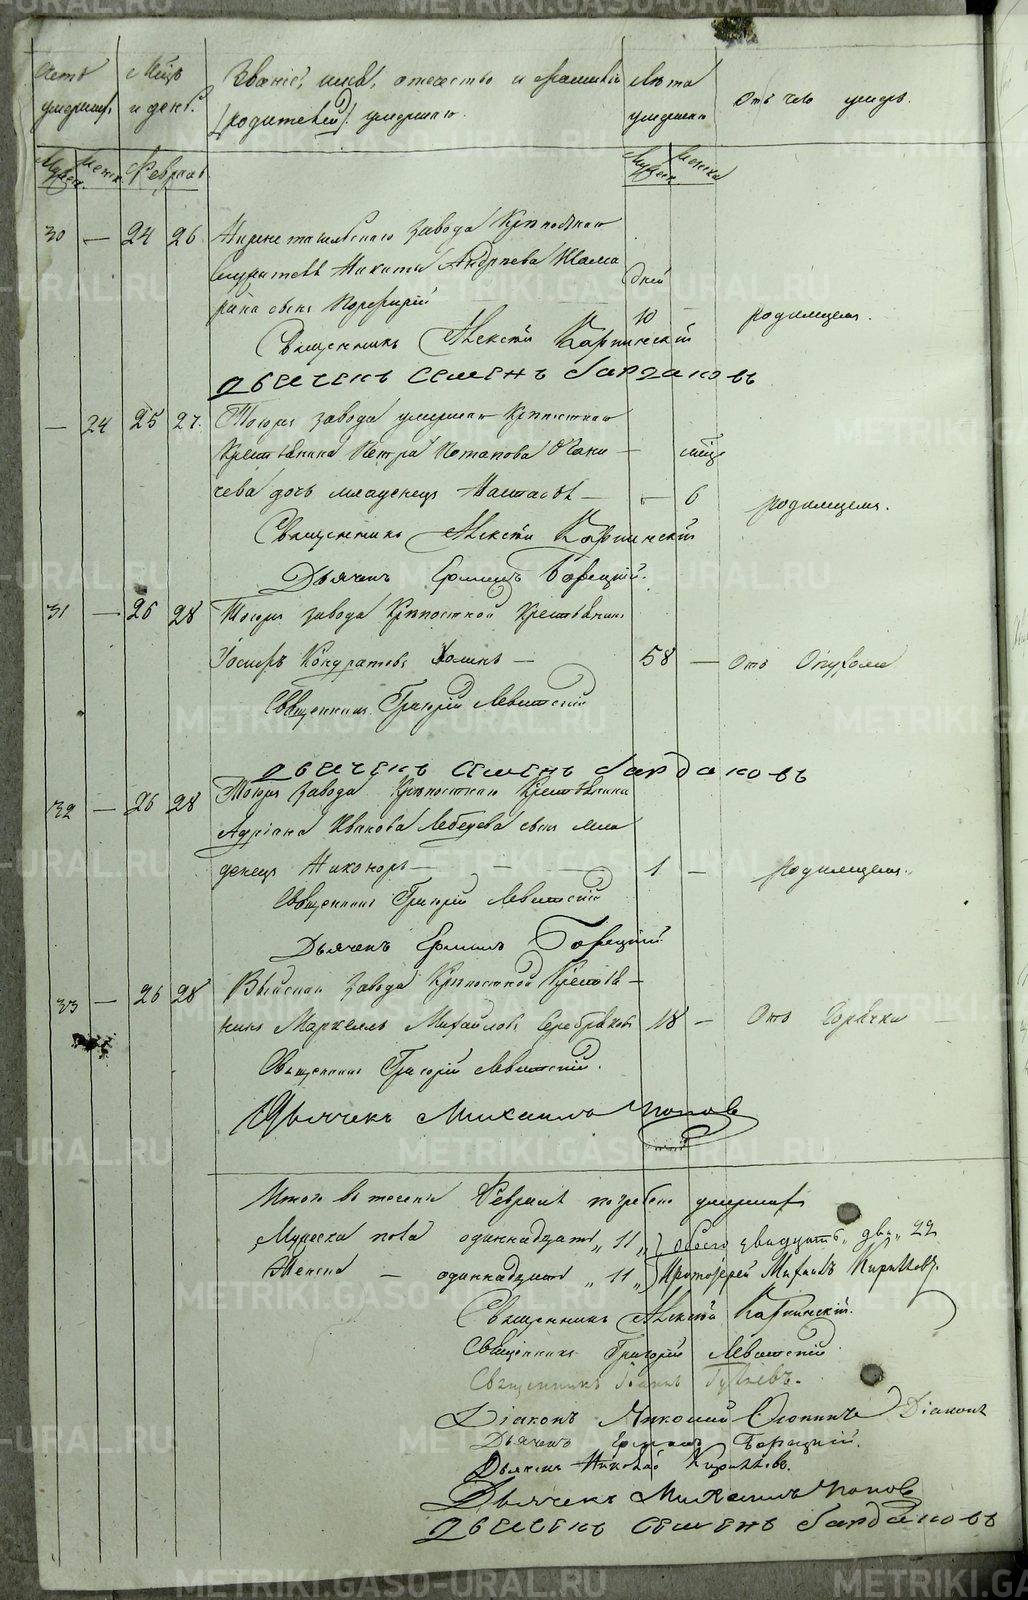 Счетъ умершихъ
Мѣсяцъ и день
Званіе, имя, отечество и фамилія (родителей) умершаго
Лѣта умершаго
Отъ чего умеръ
Мужеск. Женск. Февраль Мужеск. Женска
30 — 24 26 Нижнетагильскаго завода Крѣпостнаго
служителя Никиты Андреева Шама
рина сынъ Порфирій дней 10 — родимцемъ.
Священникъ Алексѣй Карпинскій
дьячекъ семенъ барданов
— 24 25 27. Тогоже завода умершаго Крѣпостнаго
Крестьянина Петра Потапова
чева дочь младенецъ Настасья — — мѣс 6 родимцемъ.
Священникъ Алексѣй Карпинскій
Дьячекъ Ермилъ Борецкій.
31 — 26 28 Тогоже завода Крѣпостной Крестьянинъ
Іосифъ Кондратовъ — 58 — Отъ Опухоли
Священникъ Григорій Левитскій
дьячекъ семенъ бардановъ
32 — 26 28 Тогоже завода Крѣпостнаго Крестьянина
Адріана Иванова Лебедева сынъ мла
денецъ Никаноръ — 1 — родимцемъ.
Священникъ Григорій Левитскій
Дьячекъ Ермилъ Борецкій
33 — 26 28 Выйскаго завода Крѣпостной Крестья-
нинъ Маркеллъ Михайловъ Серебряковъ 18 — Отъ Горячки —
Священникъ Григорій Левитскій.
Дьячекъ Михаилъ Поповъ
Итого въ теченіи Февраля погребено умершихъ
Мужеска пола одиннадцать „11„ } всего двадцать„ два„ 22
Женска — одиннадцать „11„ } Протоіерей Михаилъ Кирилловъ.
Священникъ Алексѣй Карпинскій.
Священникъ Григорій Левитскій
Священникъ Іоаннъ
Діаконъ Николай Діаконъ
Дьячекъ Ермилъ Борецкій.
Дьячекъ Николай Кирилловъ.
Дьячекъ Михаилъ Поповъ
дьячекъ семенъ бардановъ
METRIKI.GASO-URAL.RU